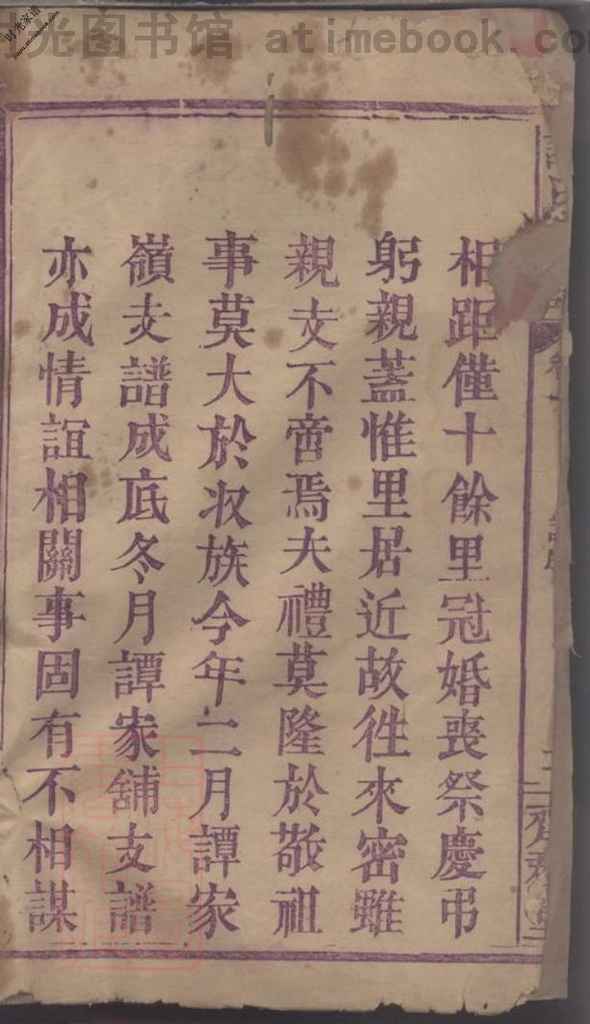 时光图书馆 atimebook.co
相距僅十餘里冠婚喪祭慶弔
躬親蓋惟里居近故徃來密雖
親支不啻焉夫禮莫隆於敬祖
事莫大於收族今年二月譚家
嶺支譜成底冬月譚家舖支譜
亦成情誼相關事固有不相謀